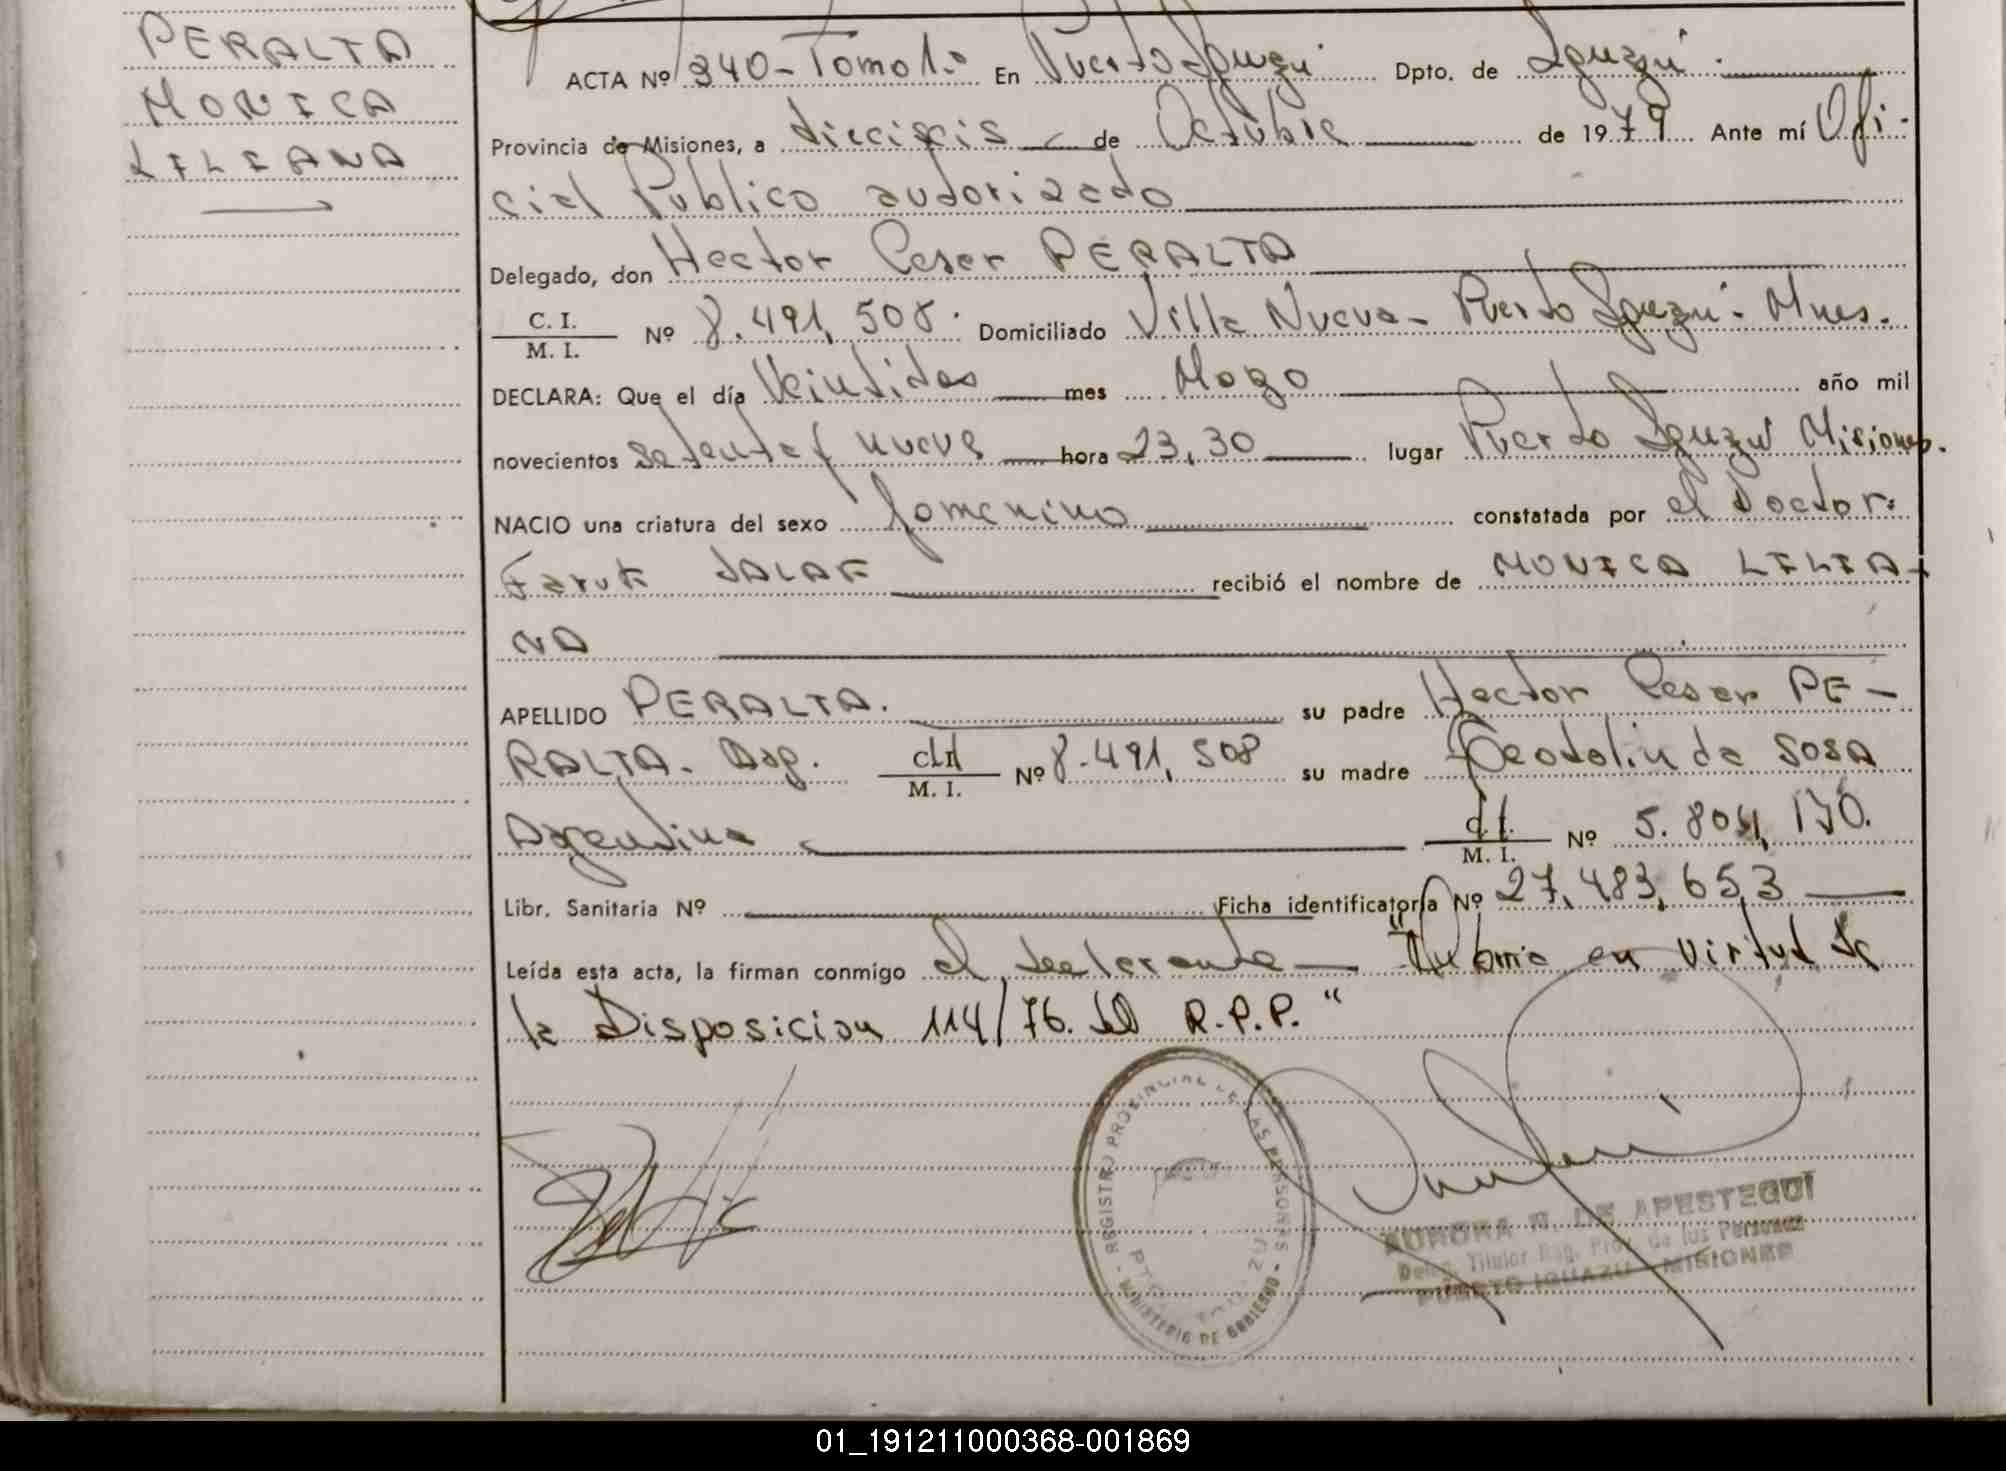 PERALTA
MONICA
LILIANA
ACTA Nº 340- Tomo 1º En Puerto Iguazú Dpto. de Iguazú.
Provincia de Misiones, a dieciseis de Octubre de 1979 Ante mí Ofi-
cial Publico autorizado
Delegado, don Hector Cesar PERALTA
C. I.
M. I. Nº 8.491,508. Domiciliado Villa Nueva- Puerto Iguazú- Mnes.
DECLARA: Que el día Veintidos mes Mayo año mil
novecientos setenta y nueve hora 23,30 lugar Puerto Iguazú Misiones.
NACIO una criatura del sexo femenino constatada por el Doctor:
Faruk JALAF recibió el nombre de MONICA LILIA-
NA
APELLIDO PERALTA. su padre Hector Cesar PE-
RALTA. Arg. M. I. Nº 8.491,508 su madre Teodolinda SOSA
Argentina M. I. Nº 5.804,170.
Libr. Sanitaria Nº Ficha identificatoria Nº 27,483,653
Leída esta acta, la firman conmigo el declarante "Rubrica en virtud de
la Disposicion 114/76. del R.P.P."
REGISTRO PROVINCIAL DE LAS PERSONAS
- MINISTERIO DE GOBIERNO -
AURORA R. DE APESTEGUI
Deleg. Titular Reg. Prov. de las Personas
PUERTO IGUAZU - MISIONES
01_191211000368-001869